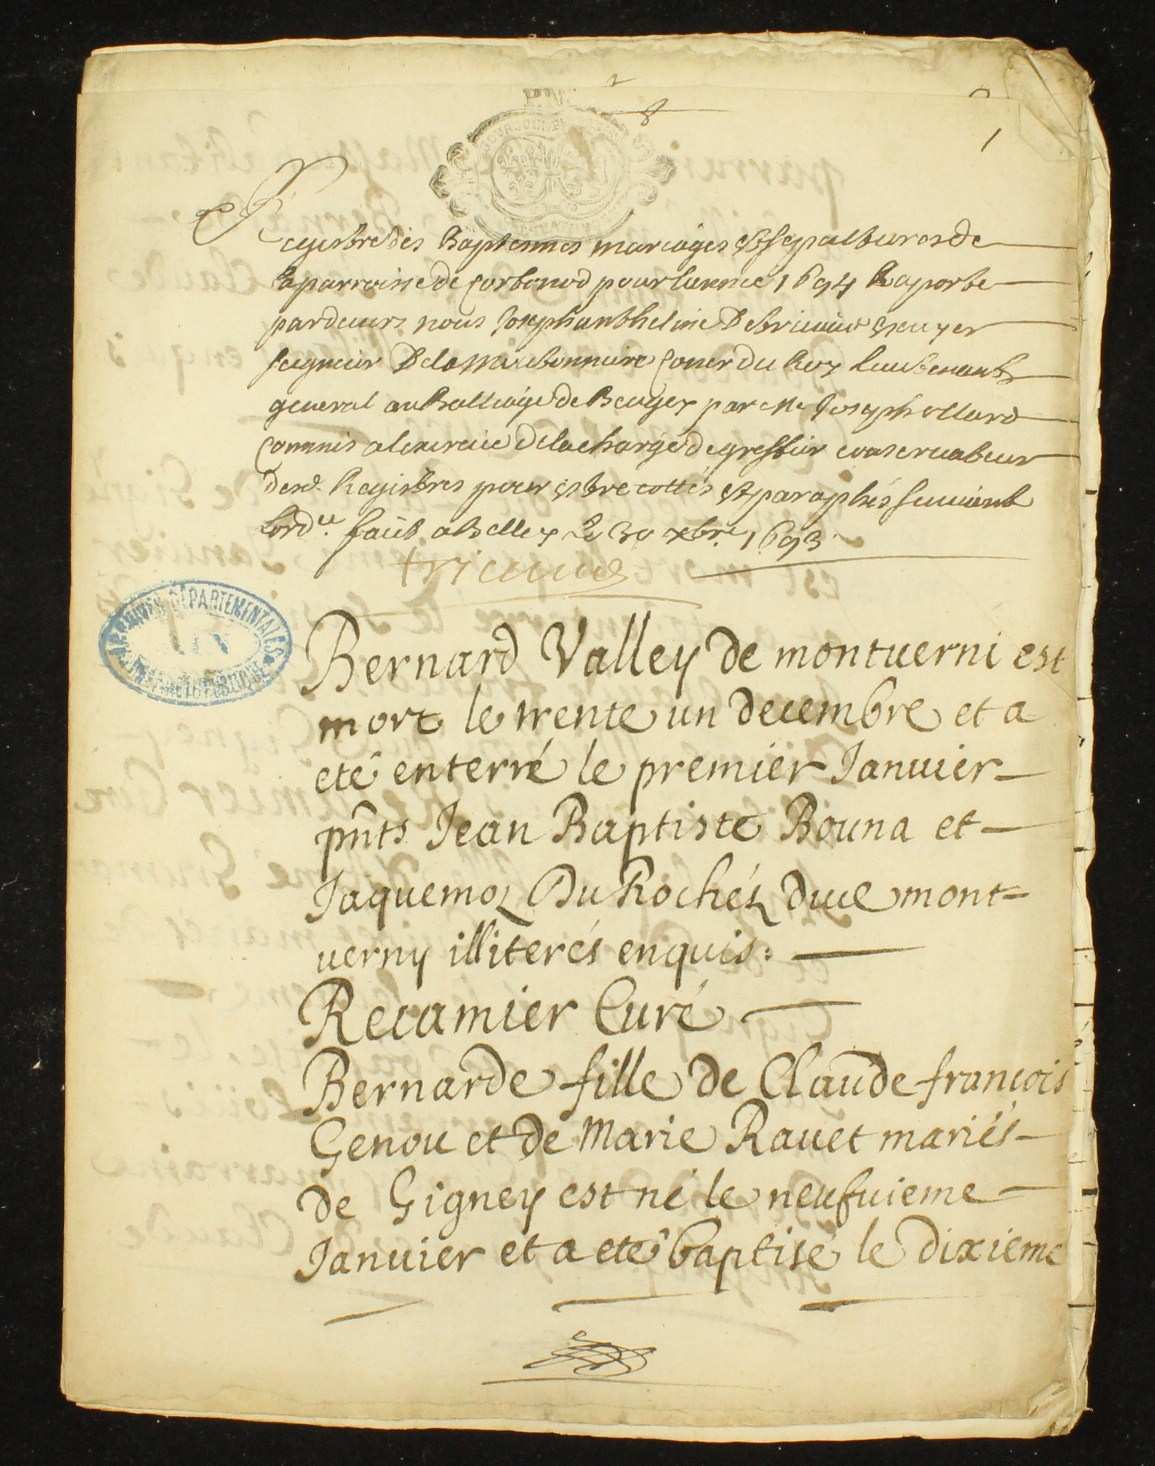 1
Registre des Baptesmes mariages et sepultures de
la parroisse de Corbonod pour lannee 1694 Raporte
pardevant nous Joseph anthelme Detricaud escuyer
seigneur Dela Conser du Roy lieutenant
general au Balliage de Beugey par Me Joseph ollard
Commis a lexercice dela charge de greffier conservateur
desd. Registres pour estre cottés et paraphés suivant
lord.ce fait a Belley le 30 xbre 1693
tricaud
ARCHIVES DÉPARTEMENTALES
AIN
Bernard Valley de montuerni est
mort le trente un decembre et a
eté enterré le premier Januier
pnts Jean Baptiste Bouna et
Jaquemoz Du Rochéz dud mont=
uerny illiterés enquis:
Recamier Curé
Bernarde fille de Claude françois
Genou et de Marie Rauet mariés
de Gigney est né le neufuieme
Januier et a eté baptisé le dixieme